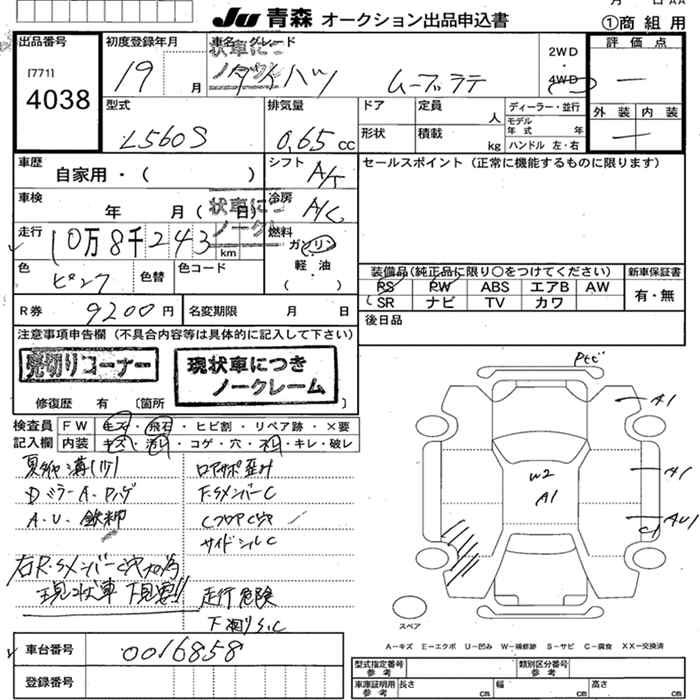 月 日 AA
JU 青森 オークション出品申込書
①商組用
出品番号
[771]
4038
初度登録年月
19 月
車名・グレード
ダイハツ ムーブラテ
状車に
ノーク
2WD
・
4WD
評価点
—
外装 内装
—
型式
L560S
排気量
0.65 cc
ドア
定員 人
形状
積載 kg
ディーラー・並行
モデル年式 年
ハンドル 左・右
車歴
自家用・( )
シフト
A/T
セールスポイント(正常に機能するものに限ります)
車検
年 月( 日)
状車に
ノーク
冷房
A/C
走行
10万8千243 km
燃料
ガソリン
軽・油
( )
色
ピンク
色替
色コード
装備品(純正品に限り○をつけてください)
PS PW ABS エアB AW
SR ナビ TV カワ
新車保証書
有・無
R券
9200円
名変期限 月 日
後日品
注意事項申告欄(不具合内容等は具体的に記入して下さい)
売切りコーナー
現状車につき
ノークレーム
修復歴 有 〔箇所
検査員
記入欄
FW キズ・飛石・ヒビ割・リペア跡・×要
内装 キズ・汚レ・コゲ・穴・スレ・キレ・破レ
ロアサポ歪ミ
Dミラー A・Dハゲ
F.SメンバーC
A.U.
CフロアC穴
サイドシルC
右R.SメンバーC穴大の為
現状車 下見要!!
走行危険
下廻りS.C
A1
A1
AU1
C1
W2
A1
スペア
A−キズ E−エクボ U−凹み W−補修跡 S−サビ C−腐食 XX−交換済
車台番号
0016858
登録番号
型式指定番号
参考
類別区分番号
参考
車庫証明用
参考
長さ cm 幅 cm 高さ cm